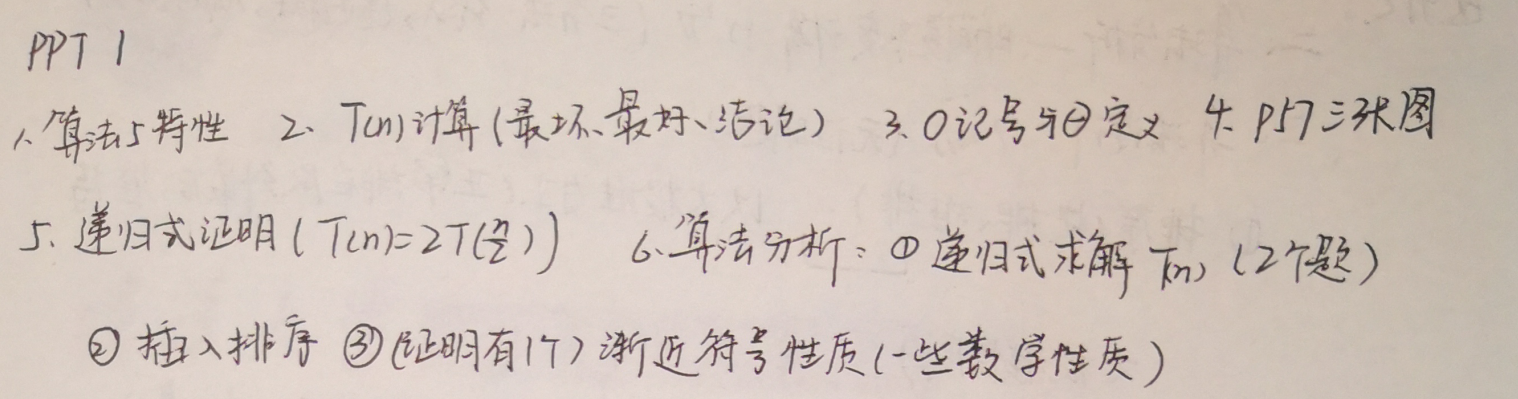 PPT 1
1. 算法5特性 2. T(n)计算(最坏、最好、结论) 3. O记号与Θ定义 4. P57三张图
5. 递归式证明(T(n)=2T(n/2)) 6. 算法分析:①递归式求解T(n)(2个题)
②插入排序 ③(证明有1个)渐近符号性质(一些数学性质)